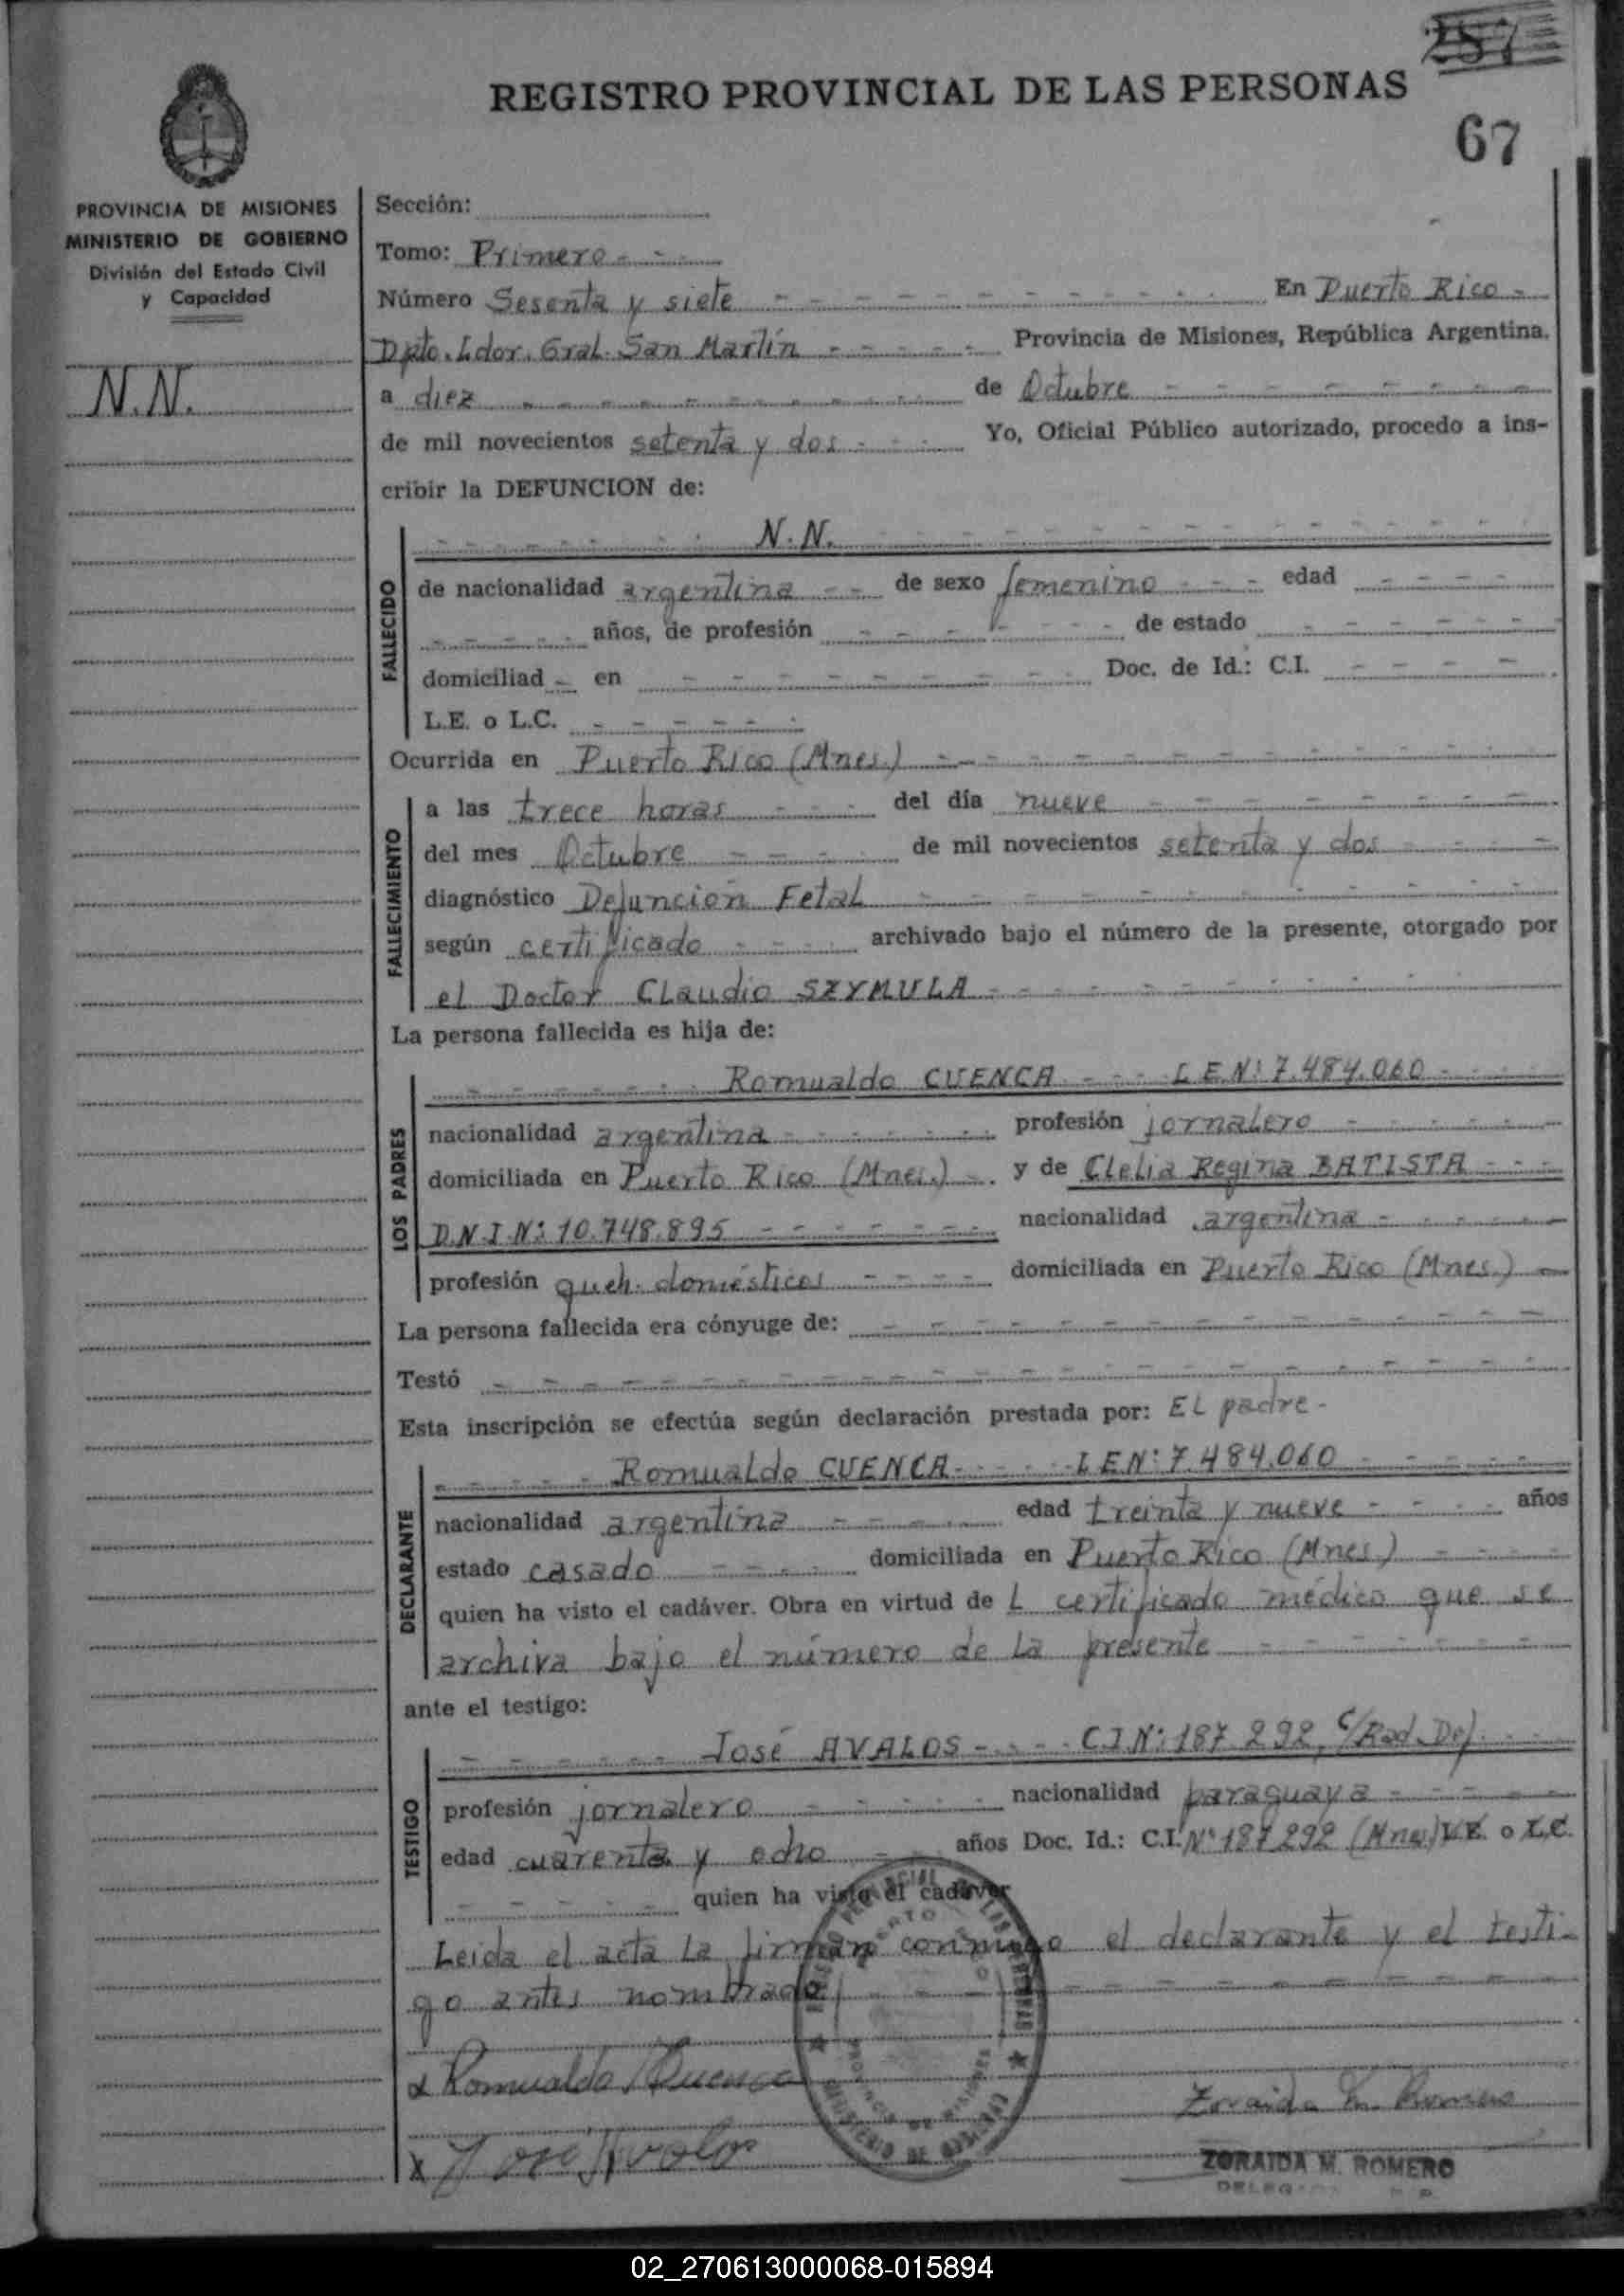 287
REGISTRO PROVINCIAL DE LAS PERSONAS
67
PROVINCIA DE MISIONES
MINISTERIO DE GOBIERNO
División del Estado Civil
y Capacidad
N.N.
Sección:
Tomo: Primero - - -
Número Sesenta y siete - - - En Puerto Rico -
Dpto. Ldor. Gral. San Martín - - - Provincia de Misiones, República Argentina.
a diez - - - de Octubre - - -
de mil novecientos setenta y dos - - - Yo, Oficial Público autorizado, procedo a ins-
cribir la DEFUNCION de:
FALLECIDO
- - - N.N. - - -
de nacionalidad argentina - - de sexo femenino - - - edad - - - -
- - - años, de profesión - - - de estado - - -
domiciliad - en - - - Doc. de Id.: C.I. - - - -
L.E. o L.C. - - -
Ocurrida en Puerto Rico (Mnes.) - - -
FALLECIMIENTO
a las trece horas - - - del día nueve - - -
del mes Octubre - - - de mil novecientos setenta y dos - - -
diagnóstico Defunción Fetal - - -
según certificado - - - archivado bajo el número de la presente, otorgado por
el Doctor Claudio SZYMULA - - -
La persona fallecida es hija de:
LOS PADRES
- - - Romualdo CUENCA - - - L E N: 7.484.060 - - -
nacionalidad argentina - - - profesión jornalero - - -
domiciliada en Puerto Rico (Mnes.) - . y de Clelia Regina BATISTA - - -
D.N.I.N: 10.748.895 - - - nacionalidad argentina - - -
profesión queh. domésticos - - - - domiciliada en Puerto Rico (Mnes.) -
La persona fallecida era cónyuge de: - - -
Testó - - -
Esta inscripción se efectúa según declaración prestada por: El padre -
DECLARANTE
- - - Romualdo CUENCA - - - L E N: 7.484.060 - - -
nacionalidad argentina - - - edad treinta y nueve - - - años
estado casado - - - domiciliada en Puerto Rico (Mnes.) - - -
quien ha visto el cadáver. Obra en virtud de l certificado médico que se
archiva bajo el número de la presente - - -
ante el testigo:
TESTIGO
- - - José AVALOS - - - C.I N: 187 292, c/Rad. Def. - -
profesión jornalero - - - nacionalidad paraguaya - - -
edad cuarenta y ocho - - años Doc. Id.: C.I. Nº 187 292 (Mnes.) L.E. o L.C.
- - - quien ha visto el cadáver
Leida el acta la firman conmigo el declarante y el testi-
go antes nombrado, - - -
Romualdo Cuenca
Zoraida M. Romero
X José Avalos
ZORAIDA M. ROMERO
02_270613000068-015894